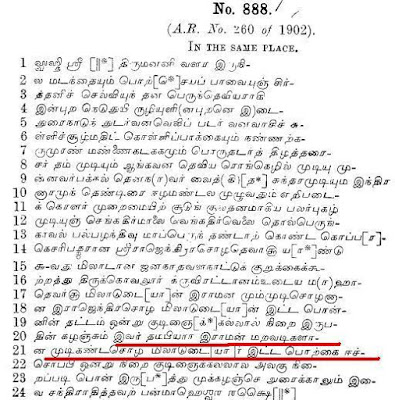 No. 888.
(A.R. No. 260 of 1902).
IN THE SAME PLACE.
1 ஸ்ரீ [||*] திருமன்னி வளர இரு-
2 ல மடந்தையும் பொற்[செ*]சயப் பாவையுஞ் சிர்-
3 த்தனிச் செல்வியுந் தன பெருந்தெவியராகி
4 இன்புற நெடுதியி
5 அரைநாடுந் துடர்வனவெலிப் படர் வனவாசிச் சு-
6 ள்ளிச்சூழ்மதிட் கொள்ளிப்பாக்கையும் கண்ணற்க-
7 ருமுரண் மண்ணைகடகமும் பொருதடாந் திழத்தரை-
8 சர் தம் முடியும் ஆங்கவன் தெவிய ரொங்கழில் முடியு மு-
9 ன்னவர்பக்கல் சுந்தரமுடியும் இந்திர
10 னாரமுந் தெண்டிரை ஈழமண்டல முழுவதும் எறிபடை-
11 க் கொளர் முறைமையிற் சூடுங் குலதனமாகிய பலர்புகழ்
12 முடியுஞ் செங்கதிர்மாலை வெங்கதிர்வெலை தொல்பெருங்-
13 காவல் பல்பழந்திவு மாப்பொருந் தண்டாற் கொண்ட கொப்ப[ர]-
14 கெசரிபந்மரான ஸ்ரீராஜெந்திரசொழதெவர்க்கு யா[ண்*]டு
15 மிலாடான ஜனநாதவளநாட்டுக் குறுக்கைக்கூ-
16 ற்றத்து திருக்கொவலூர்
17 தெவர்க்கு மிலாடுடை[யா]ன் இராமன் மும்முடிசொழனா-
18 ன இராஜெந்திரசொழ மிலாடுடை[யா]ன் இட்ட பொன்
19 னின் தட்டம் ஒன்று குடிஞை[க்*]கல்லால் நிறை இருப-
20 தின் கழஞ்சும் இவர் தமபியார் இராமன் மறவடிகளா-
21 ன முடிகண்டசொழ மிலாடுடை[யா]ர் இட்ட பொற்கை ஈச்-
22 சொப்பி ஒன்று நிறை குடிஞைகல்லால் அலகு கை
23 றப்படி பொன் இரு[ப*]த்து முக்கழஞ்செ அரைக்காலும் இவை
24 சந்திராதித்தவற் பன்மாஹெஸ்வர ரக்ஷை[||*]